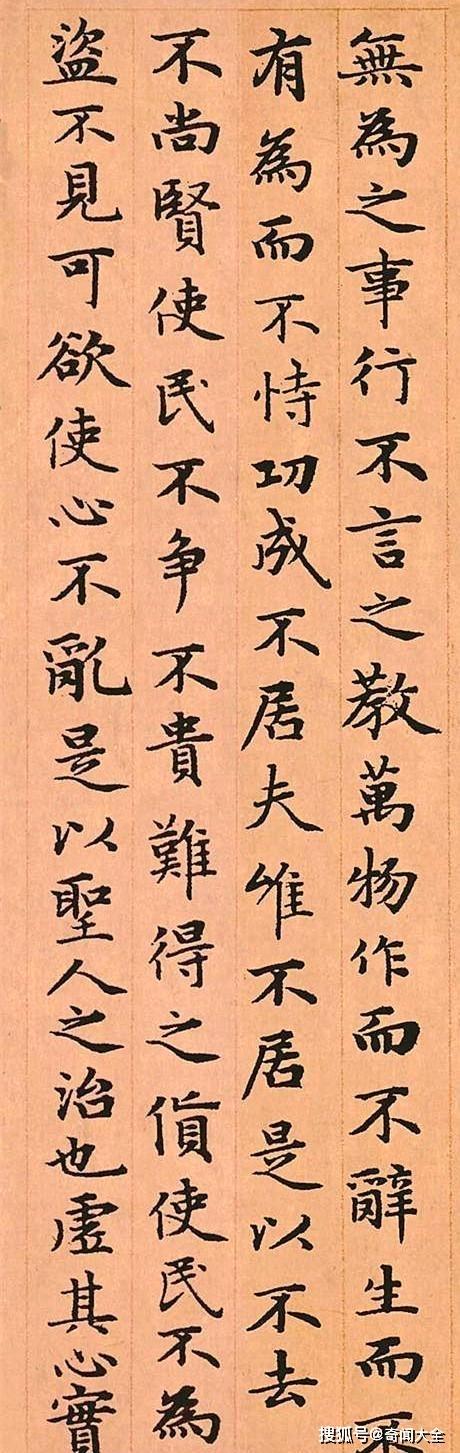 無為之事行不言之教萬物作而不辭生而不
有為而不恃功成不居夫唯不居是以不去
不尚賢使民不争不貴難得之貨使民不為
盜不見可欲使心不亂是以聖人之治也虛其心實
搜狐号@奇闻大全